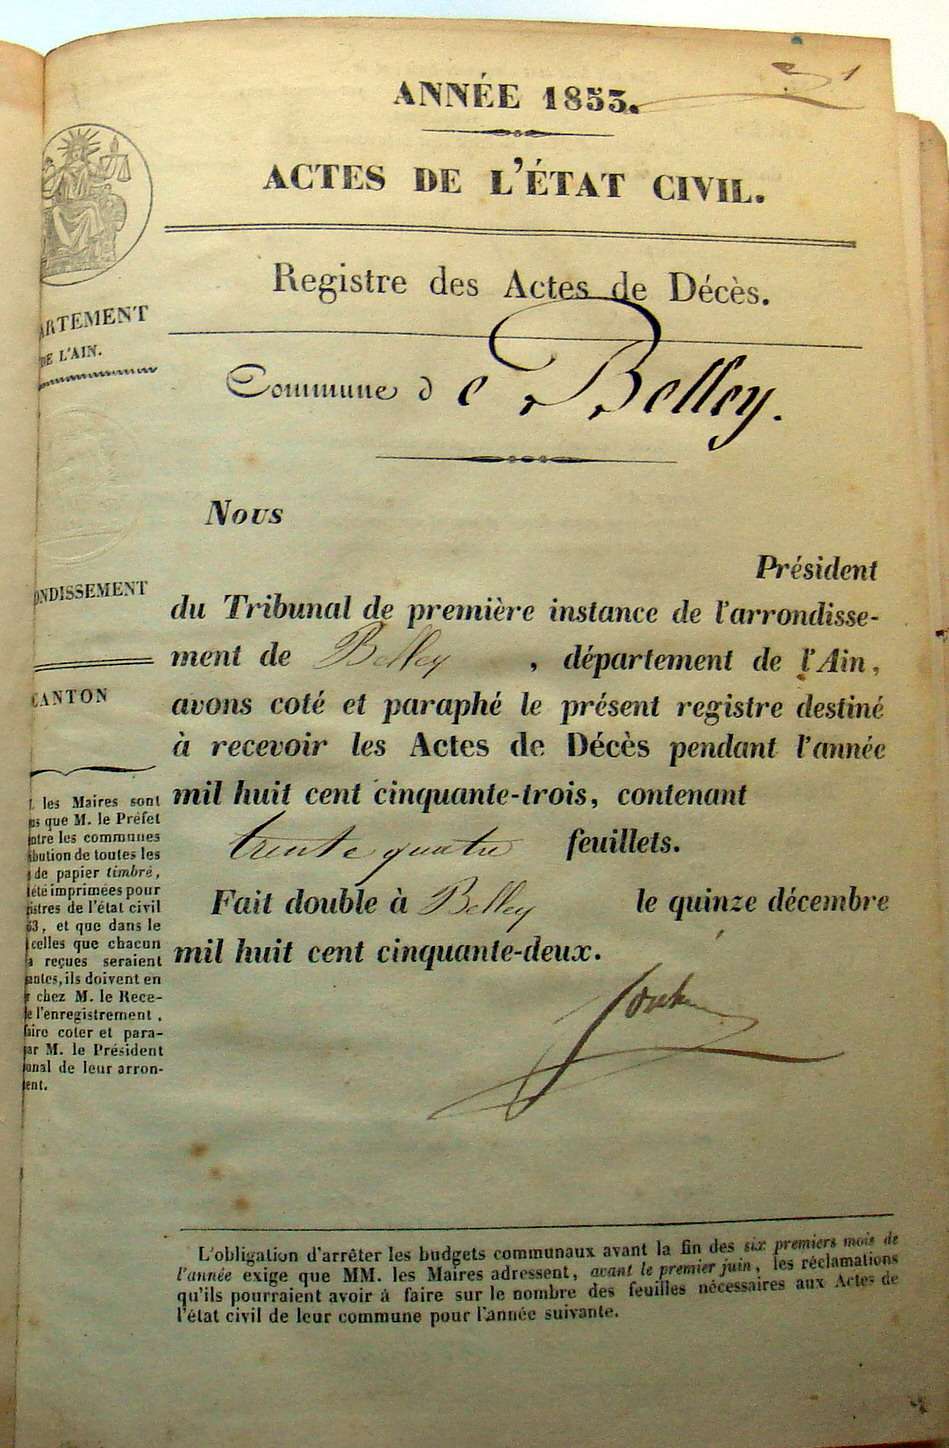 1
ANNÉE 1853.
ACTES DE L'ÉTAT CIVIL.
Registre des Actes de Décès.
ARTEMENT
DE L'AIN.
Commune de Belley.
Nous
Président
ONDISSEMENT
du Tribunal de première instance de l'arrondisse-
ment de Belley, département de l'Ain,
CANTON
avons coté et paraphé le présent registre destiné
à recevoir les Actes de Décès pendant l'année
mil huit cent cinquante-trois, contenant
trente quatre feuillets.
Fait double à Belley le quinze décembre
mil huit cent cinquante-deux.
les Maires sont
que M. le Préfet
ntre les communes
ibution de toutes les
de papier timbré,
été imprimées pour
istres de l'état civil
53, et que dans le
celles que chacun
a reçues seraient
antes, ils doivent en
r chez M. le Rece-
e l'enregistrement,
faire coter et para-
ar M. le Président
unal de leur arron-
ent.
L'obligation d'arrêter les budgets communaux avant la fin des six premiers mois de
l'année exige que MM. les Maires adressent, avant le premier juin, les réclamations
qu'ils pourraient avoir à faire sur le nombre des feuilles nécessaires aux Actes de
l'état civil de leur commune pour l'année suivante.